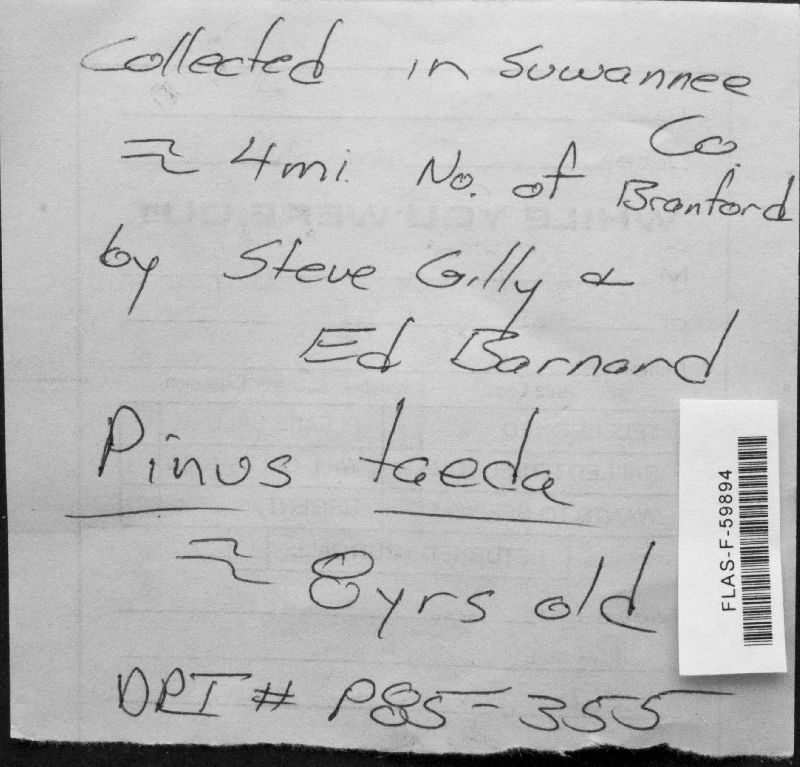 Collected in Suwannee
Co.
≈ 4mi. No. of Branford
by Steve Gilly &
Ed Barnard
Pinus taeda
≈ 8yrs old
DPI # P85-355
FLAS-F-59894
WHILE YOU WERE OUT